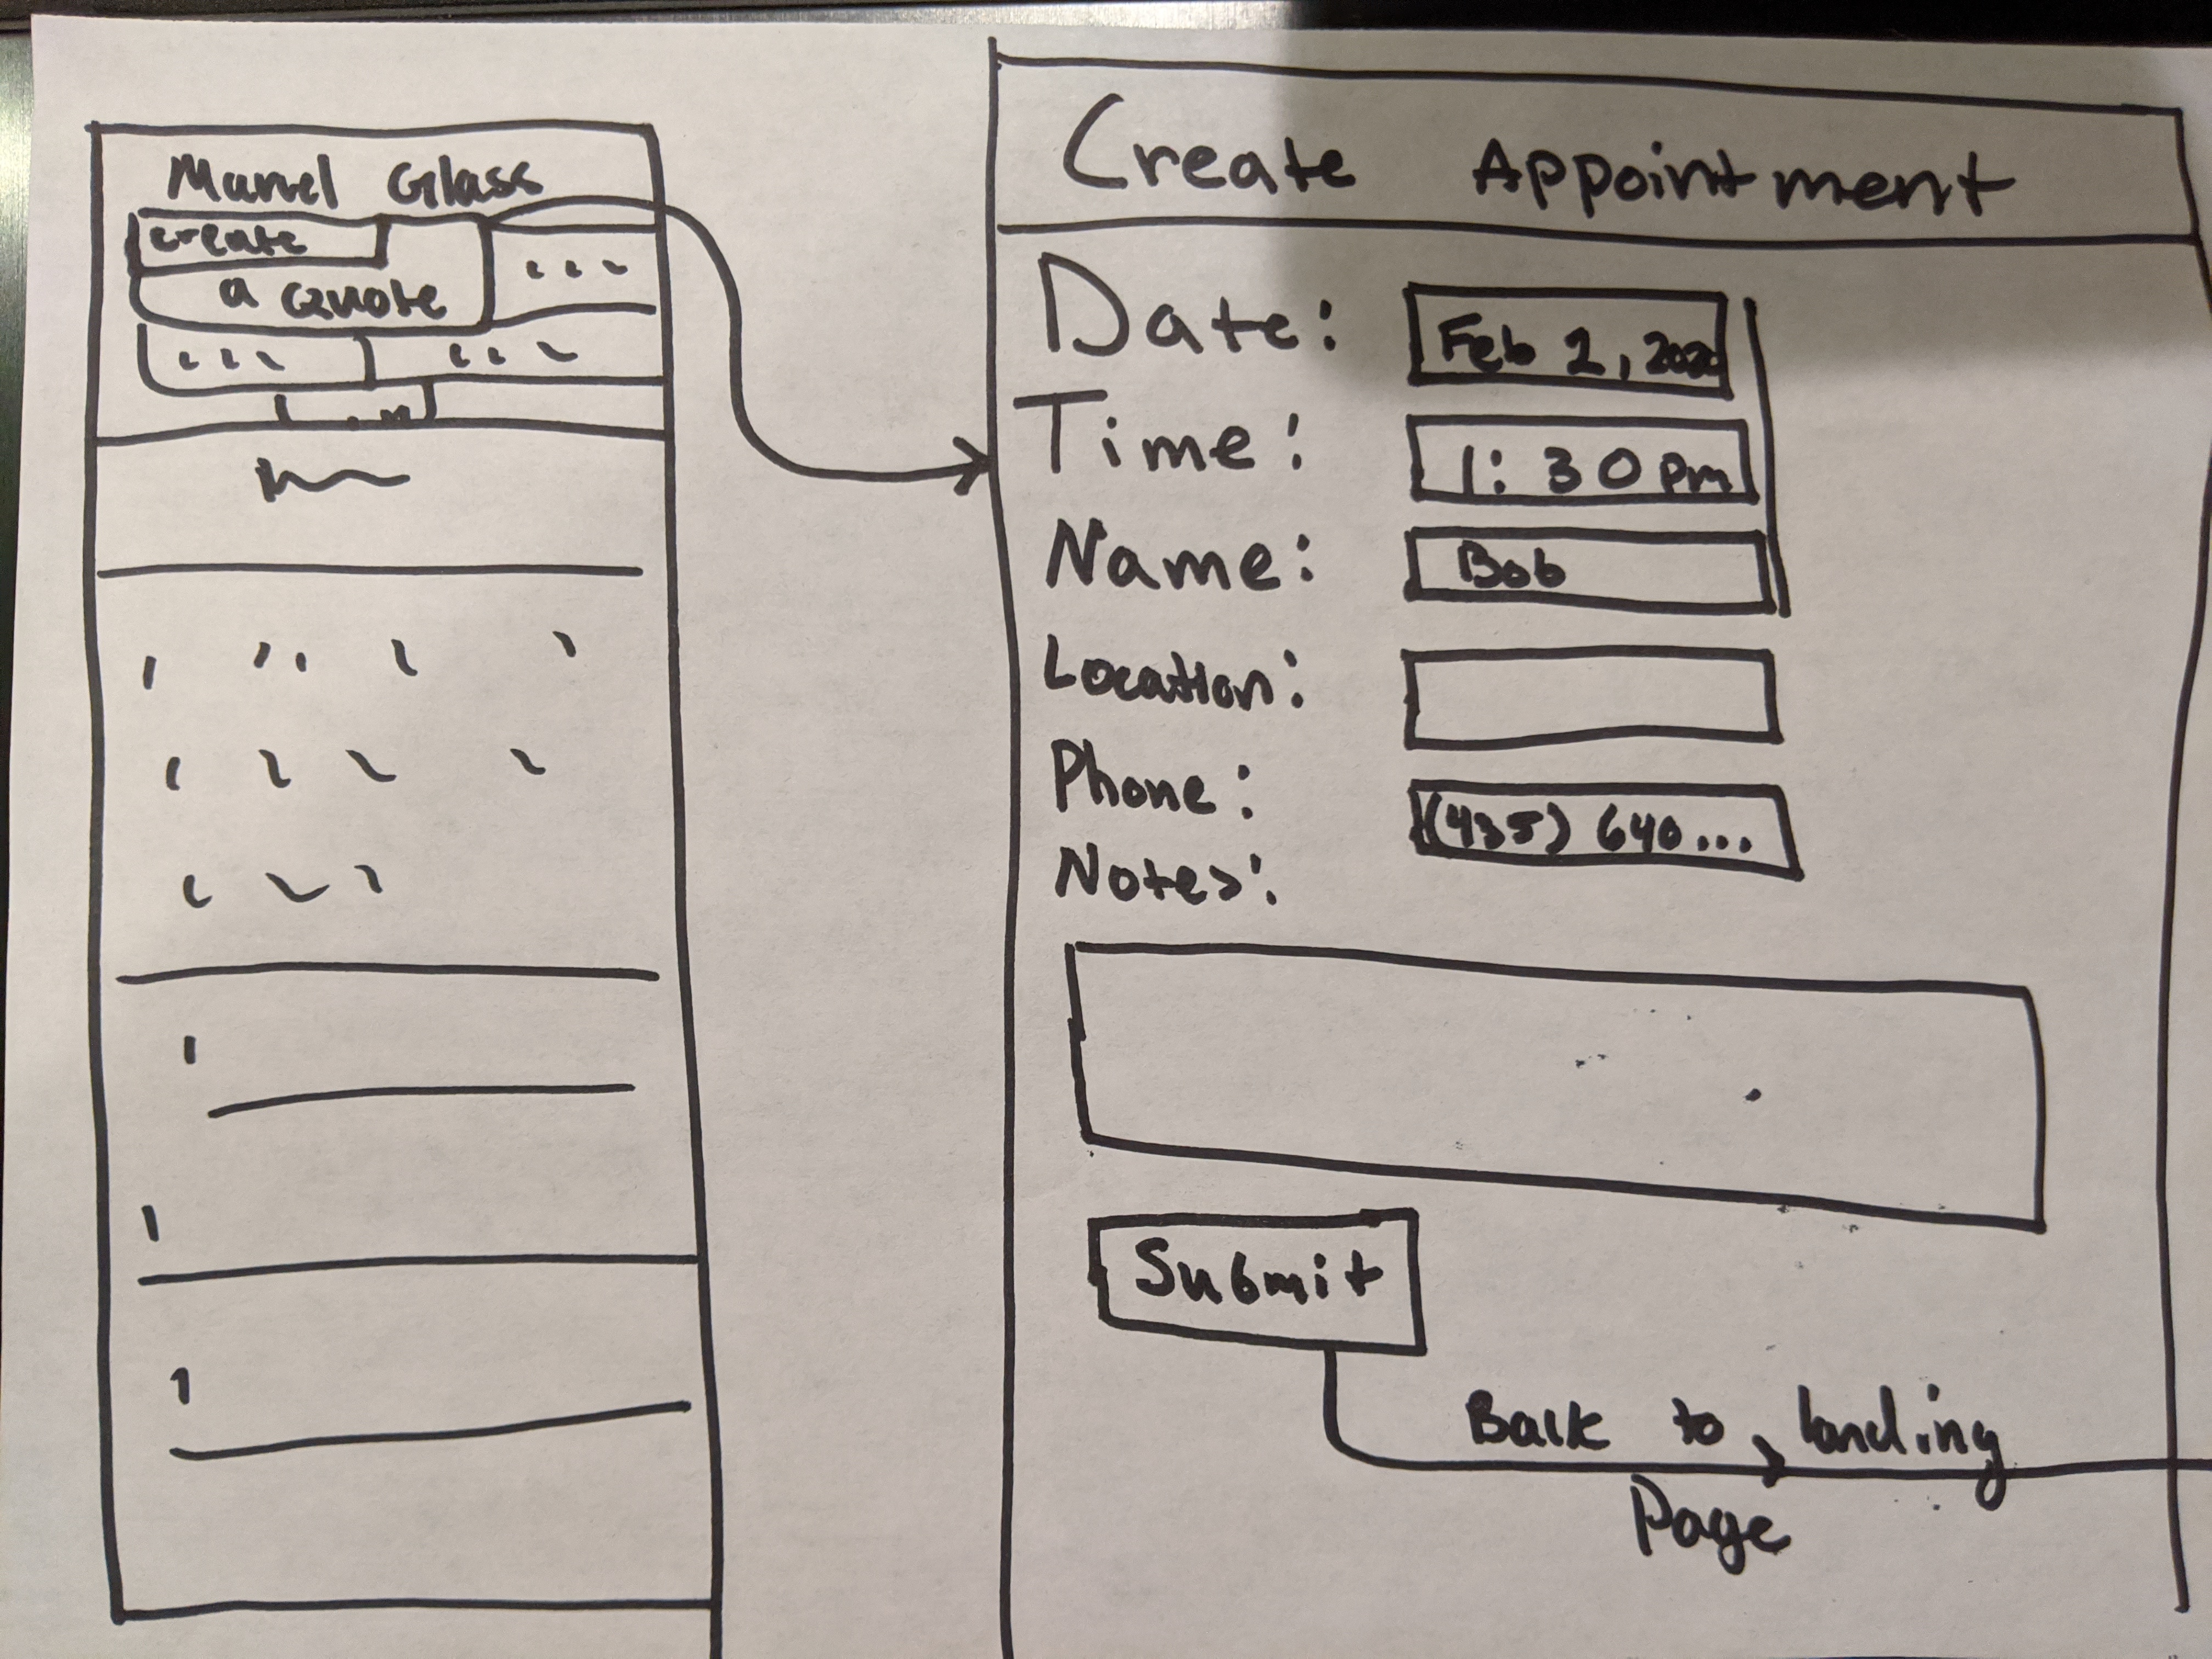 Marvel Glass
create
a Quote
Create Appointment
Date: Feb 2, 2020
Time: 1:30 pm
Name: Bob
Location:
Phone: (435) 640...
Notes:
Submit
Back to landing
Page